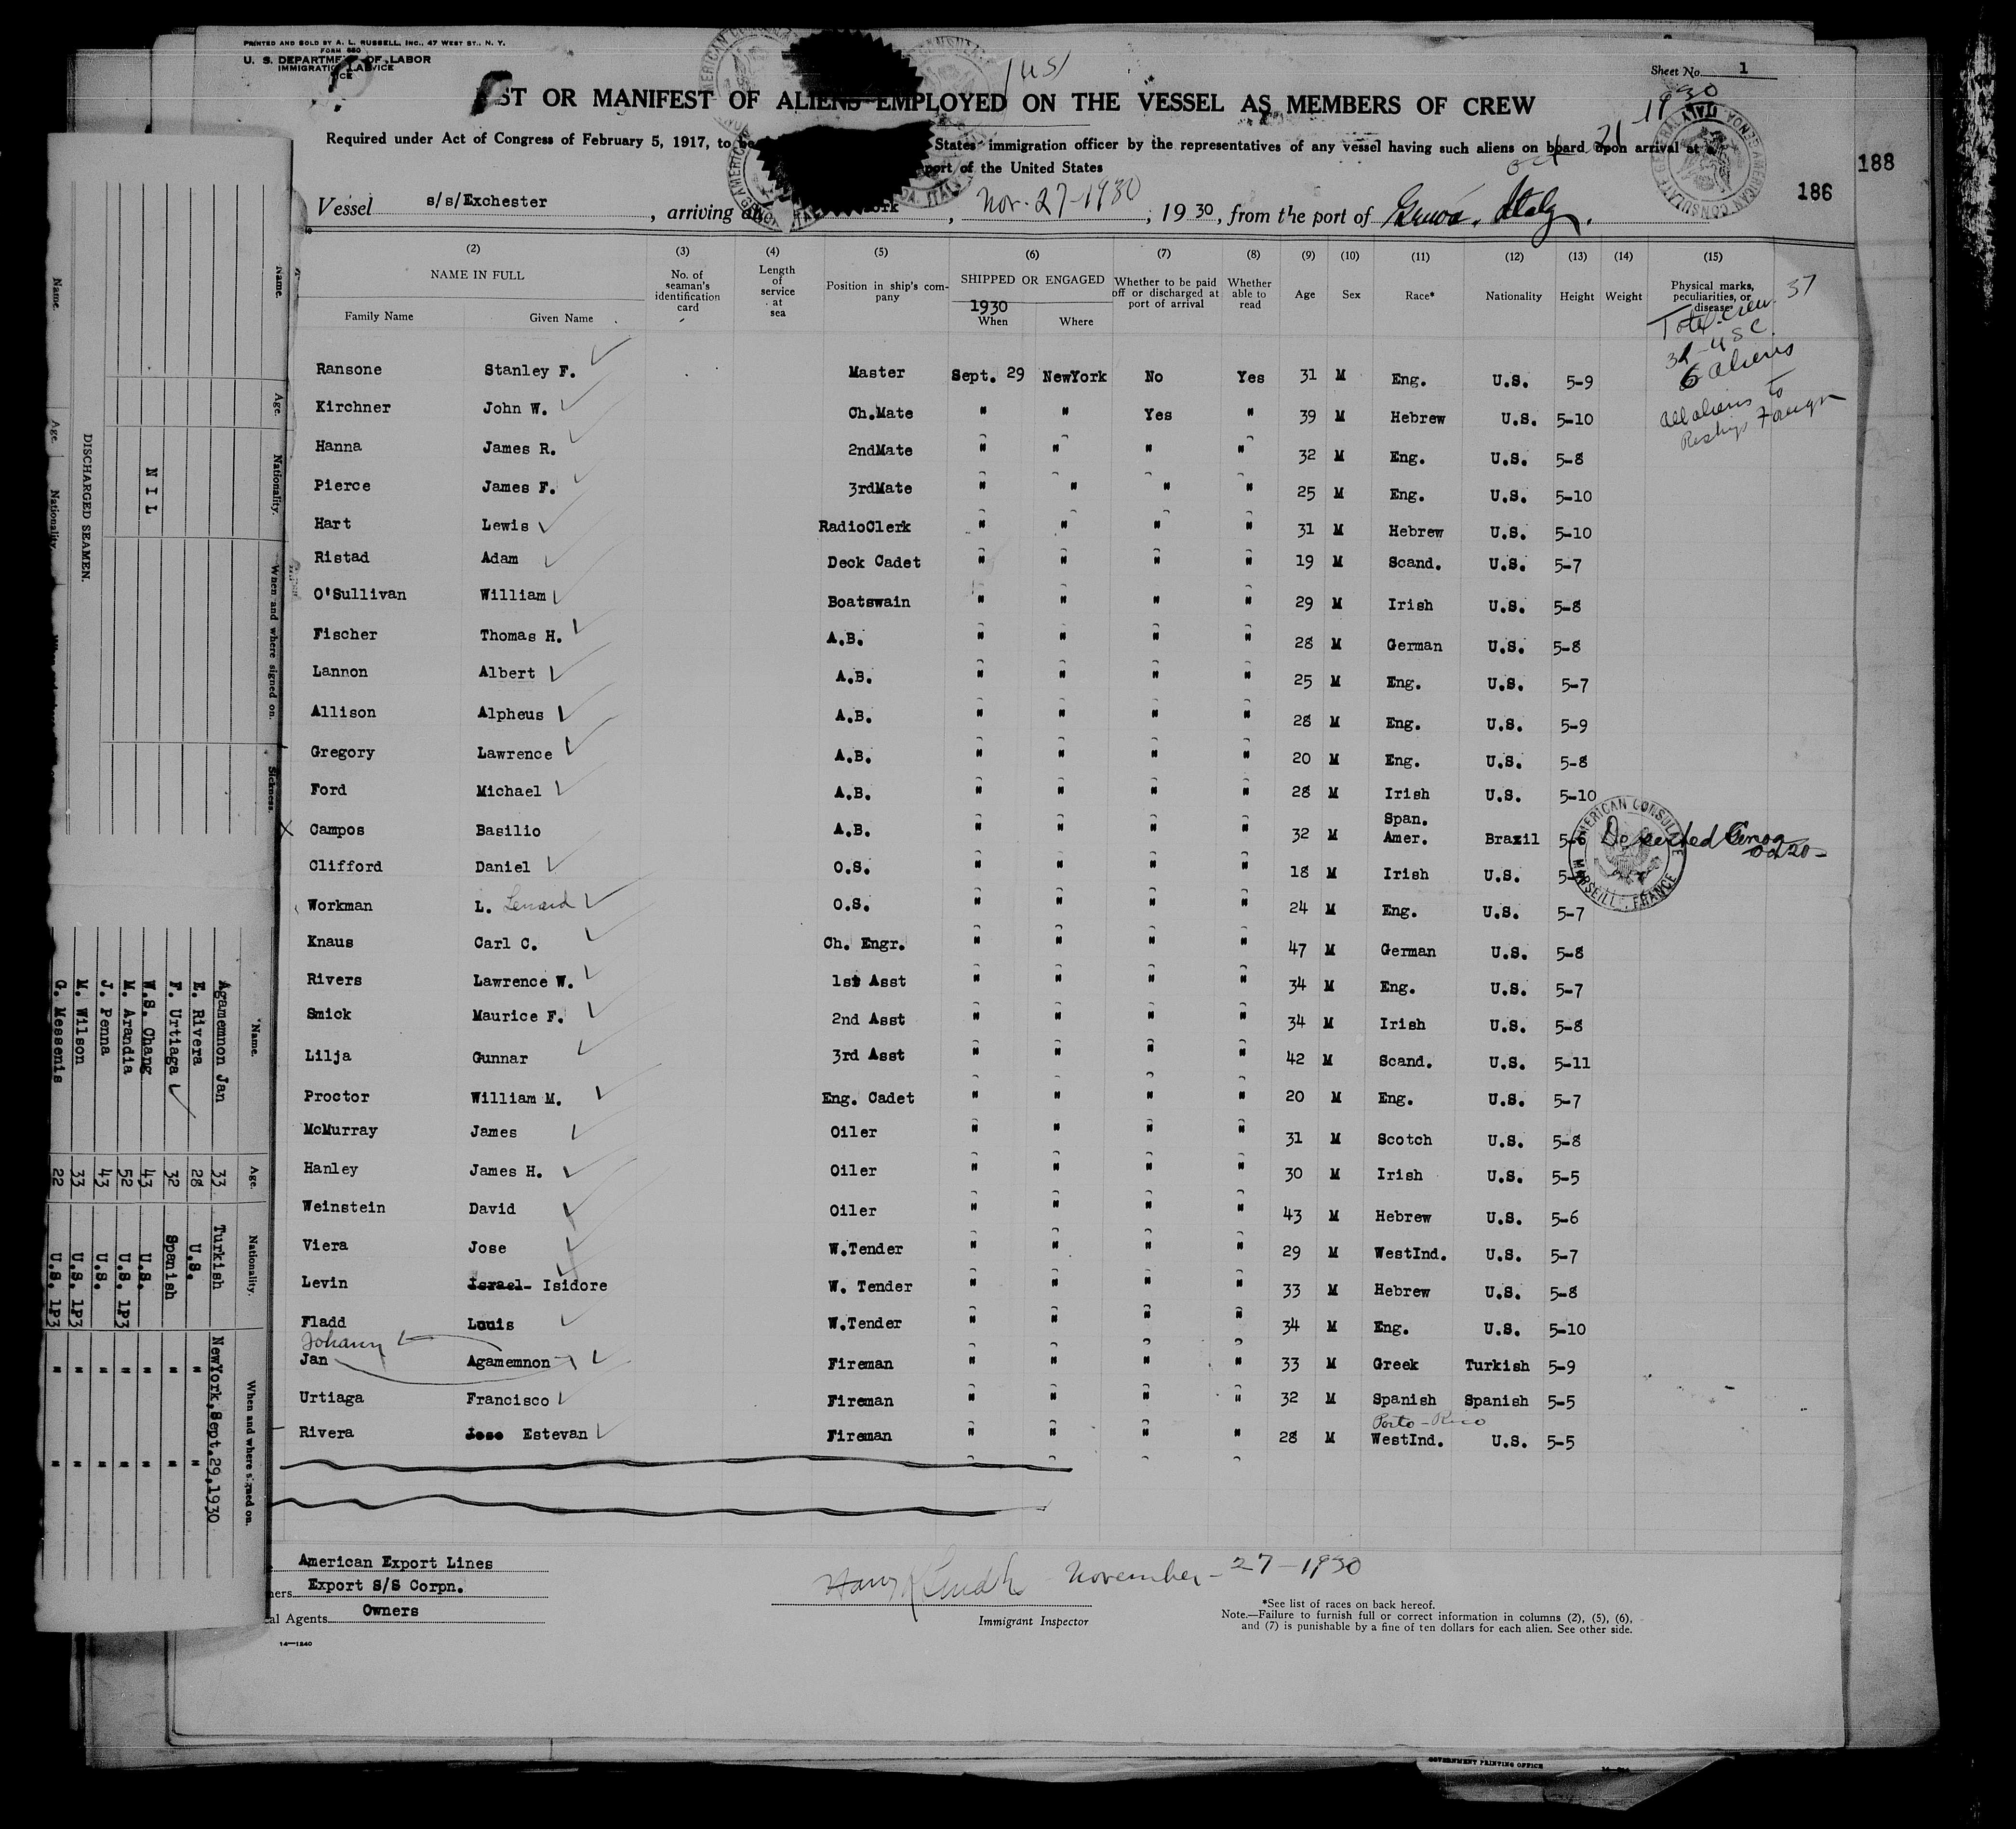 PRINTED AND SOLD BY A. L. RUSSELL, INC., 47 WEST ST., N. Y.
FORM 680
U. S. DEPARTMENT OF LABOR
IMMIGRATION SERVICE
Sheet No. 1
ST OR MANIFEST OF ALIENS EMPLOYED ON THE VESSEL AS MEMBERS OF CREW
Oct 21 - 1930
Required under Act of Congress of February 5, 1917, to be States immigration officer by the representatives of any vessel having such aliens on board upon arrival at a
port of the United States
188
186
Vessel s/s/Exchester, arriving at York, Nov. 27-1930; 1930, from the port of Genoa, Italy.
(2) (3) (4) (5) (6) (7) (8) (9) (10) (11) (12) (13) (14) (15)
NAME IN FULL
Family Name Given Name
No. of seaman's identification card
Length of service at sea
Position in ship's company
SHIPPED OR ENGAGED
1930
When Where
Whether to be paid off or discharged at port of arrival
Whether able to read
Age Sex Race* Nationality Height Weight
Physical marks, peculiarities, or disease
Total Crew 37
31 - USC
6 aliens
All aliens to
Reship Foreign
Ransone Stanley F. Master Sept. 29 NewYork No Yes 31 M Eng. U.S. 5-9
Kirchner John W. Ch.Mate " " Yes " 39 M Hebrew U.S. 5-10
Hanna James R. 2ndMate " " " " 32 M Eng. U.S. 5-8
Pierce James F. 3rdMate " " " " 25 M Eng. U.S. 5-10
Hart Lewis RadioClerk " " " " 31 M Hebrew U.S. 5-10
Ristad Adam Deck Cadet " " " " 19 M Scand. U.S. 5-7
O'Sullivan William Boatswain " " " " 29 M Irish U.S. 5-8
Fischer Thomas H. A.B. " " " " 28 M German U.S. 5-8
Lannon Albert A.B. " " " " 25 M Eng. U.S. 5-7
Allison Alpheus A.B. " " " " 28 M Eng. U.S. 5-9
Gregory Lawrence A.B. " " " " 20 M Eng. U.S. 5-8
Ford Michael A.B. " " " " 28 M Irish U.S. 5-10
X Campos Basilio A.B. " " " " 32 M Span. Amer. Brazil 5-6 Deserted Genoa Oct 20-
Clifford Daniel O.S. " " " " 18 M Irish U.S. 5-
Workman L. Lenard O.S. " " " " 24 M Eng. U.S. 5-7
Knaus Carl C. Ch. Engr. " " " " 47 M German U.S. 5-8
Rivers Lawrence W. 1st Asst " " " " 34 M Eng. U.S. 5-7
Smick Maurice F. 2nd Asst " " " " 34 M Irish U.S. 5-8
Lilja Gunnar 3rd Asst " " " " 42 M Scand. U.S. 5-11
Proctor William M. Eng. Cadet " " " " 20 M Eng. U.S. 5-7
McMurray James Oiler " " " " 31 M Scotch U.S. 5-8
Hanley James H. Oiler " " " " 30 M Irish U.S. 5-5
Weinstein David Oiler " " " " 43 M Hebrew U.S. 5-6
Viera Jose W.Tender " " " " 29 M WestInd. U.S. 5-7
Levin Israel- Isidore W. Tender " " " " 33 M Hebrew U.S. 5-8
Fladd Louis W.Tender " " " " 34 M Eng. U.S. 5-10
Johann
Jan Agamemnon Fireman " " " " 33 M Greek Turkish 5-9
Urtiaga Francisco Fireman " " " " 32 M Spanish Spanish 5-5
Porto-Rico
Rivera Jose Estevan Fireman " " " " 28 M WestInd. U.S. 5-5
AMERICAN CONSULATE
MARSEILLE, FRANCE
AMERICAN CONSULATE GENERAL
GENOA, ITALY
American Export Lines
Export S/S Corpn.
al Agents Owners
November - 27 - 1930
Immigrant Inspector
*See list of races on back hereof.
Note.—Failure to furnish full or correct information in columns (2), (5), (6),
and (7) is punishable by a fine of ten dollars for each alien. See other side.
14—1240
GOVERNMENT PRINTING OFFICE
Name. Age. Nationality. When and where signed on. Sickness.
NIL
DISCHARGED SEAMEN.
Name. Age. Nationality.
Name. Age. Nationality. When and where signed on.
Agamemnon Jan 33 Turkish NewYork, Sept.29,1930
E. Rivera 28 U.S. " "
F. Urtiaga 32 Spanish " "
W.S. Chang 43 U.S. " "
M. Arandia 52 U.S. 1P3 " "
J. Penna 43 U.S. " "
M. Wilson 33 U.S. 1P3 " "
G. Messenis 22 U.S. 1P3 " "